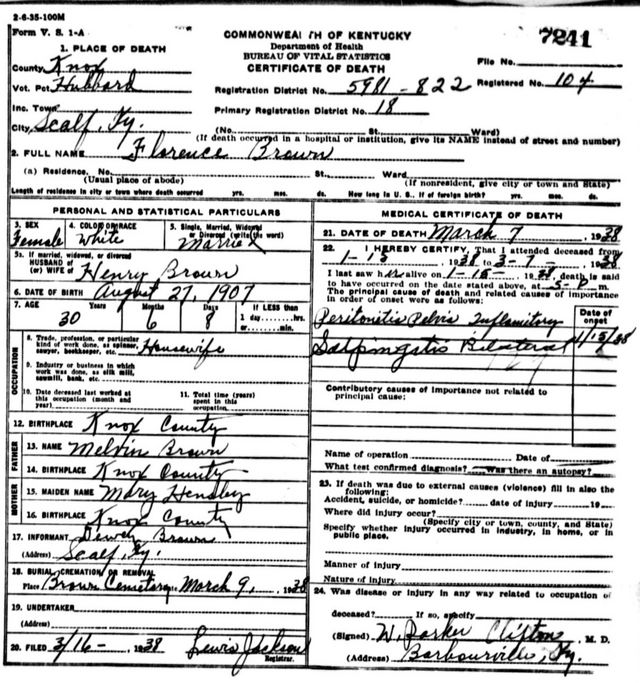 2-6-35-100M
Form V. S. 1-A
COMMONWEALTH OF KENTUCKY
Department of Health
BUREAU OF VITAL STATISTICS
CERTIFICATE OF DEATH
7241
1. PLACE OF DEATH
County Knox
Vot. Pct. Hubbard
Inc. Town
City Scalf, Ky.
File No.
Registration District No. 5981-822
Registered No. 104
Primary Registration District No. 18
(No. St. Ward)
(If death occurred in a hospital or institution, give its NAME instead of street and number)
2. FULL NAME Florence Brown
(a) Residence, No. St. Ward
(Usual place of abode) (If nonresident, give city or town and State)
Length of residence in city or town where death occurred yrs. mos. ds. How long in U. S., if of foreign birth? yrs. mos. ds.
PERSONAL AND STATISTICAL PARTICULARS
3. SEX Female
4. COLOR OR RACE White
5. Single, Married, Widowed or Divorced (write the word) Married
5a. If married, widowed, or divorced
HUSBAND of
(or) WIFE of Henry Brown
6. DATE OF BIRTH August 27, 1907
7. AGE Years Months Days If LESS than
30 6 8 1 day hrs.
or min.
OCCUPATION
8. Trade, profession, or particular
kind of work done, as spinner,
sawyer, bookkeeper, etc. Housewife
9. Industry or business in which
work was done, as silk mill,
sawmill, bank, etc.
10. Date deceased last worked at
this occupation (month and
year)
11. Total time (years)
spent in this
occupation
12. BIRTHPLACE Knox County
FATHER
13. NAME Melvin Brown
14. BIRTHPLACE Knox County
MOTHER
15. MAIDEN NAME Mary Hensley
16. BIRTHPLACE Knox County
17. INFORMANT Dewey Brown
(Address) Scalf, Ky.
18. BURIAL, CREMATION OR REMOVAL
Place Brown Cemetary March 9, 1938
19. UNDERTAKER
(Address)
20. FILED 3/16- 1938 Lewis Jackson
Registrar.
MEDICAL CERTIFICATE OF DEATH
21. DATE OF DEATH March 7, 1938
22. I HEREBY CERTIFY, That I attended deceased from
1-15 1938 to 3-7- 1938
I last saw her alive on 1-15- 1938, death is said
to have occurred on the date stated above, at 5-P m.
The principal cause of death and related causes of importance
in order of onset were as follows:
Date of
onset
Peritonitis Pelvic Inflamitory
Salpingatis Bilateral 1/15/38
Contributory causes of importance not related to
principal cause:
Name of operation Date of
What test confirmed diagnosis? Was there an autopsy?
23. If death was due to external causes (violence) fill in also the
following:
Accident, suicide, or homicide? date of injury 19
Where did injury occur?
(Specify city or town, county, and State)
Specify whether injury occurred in industry, in home, or in
public place.
Manner of injury
Nature of injury
24. Was disease or injury in any way related to occupation of
deceased? If so, specify
(Signed) W. Parker Clifton, M. D.
(Address) Barbourville, Ky.